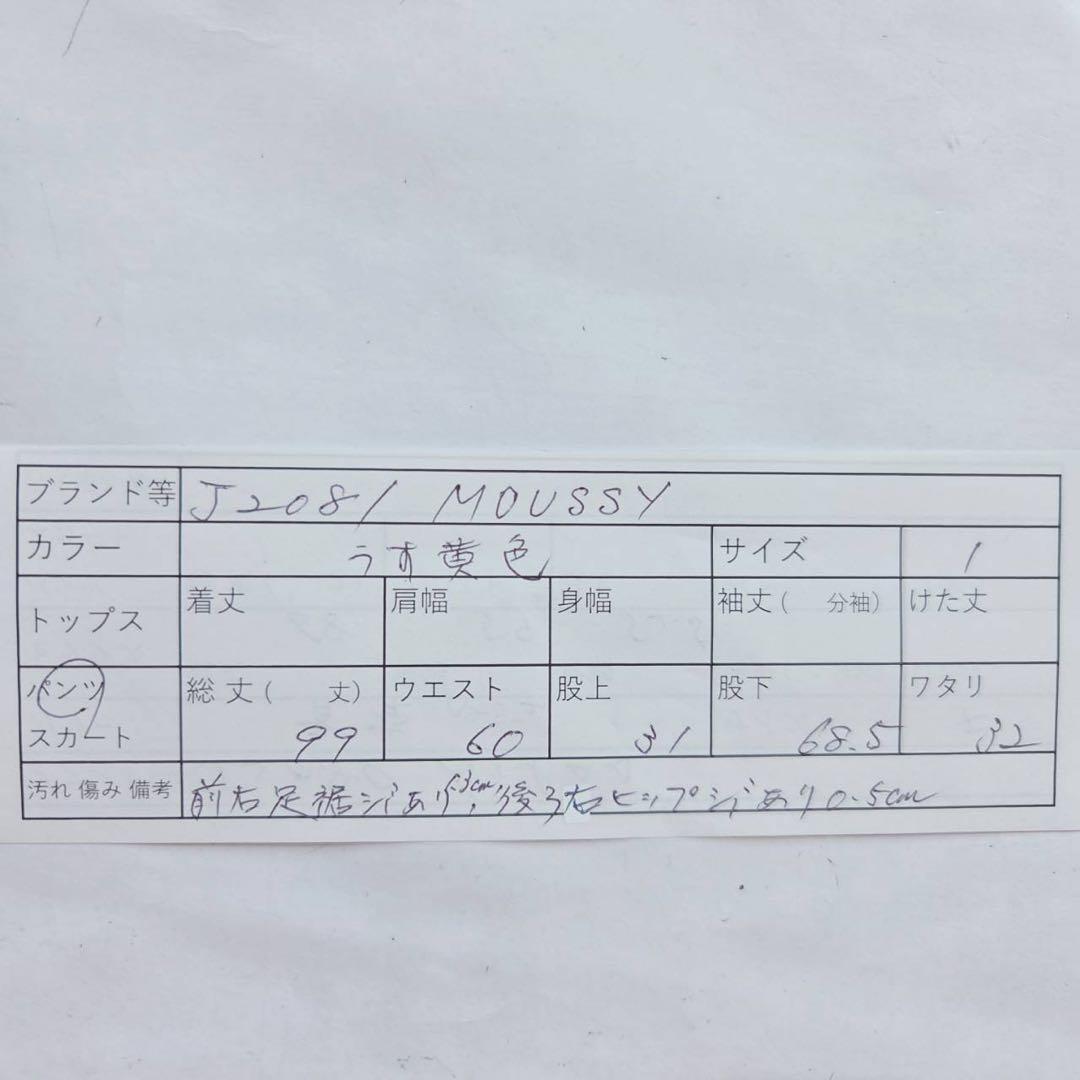 ブランド等 J2081 MOUSSY
カラー うす黄色 サイズ 1
トップス 着丈 肩幅 身幅 袖丈( 分袖) けた丈
パンツ 総丈( 丈) ウエスト 股上 股下 ワタリ
スカート 99 60 31 68.5 32
汚れ 傷み 備考 前右足裾シミあり 3cm 後ろ右ヒップシミあり0.5cm